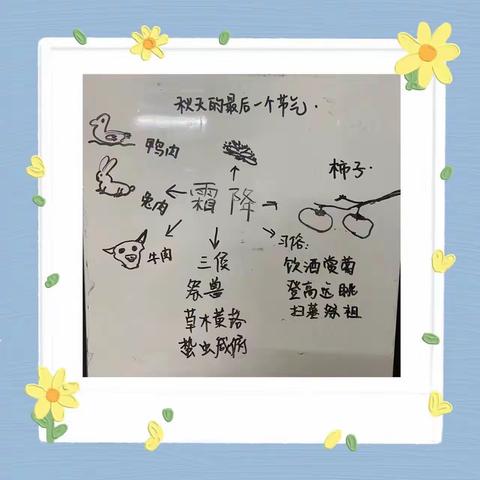 秋天的最后一个节气.
鸭肉
柿子.
兔肉
霜降
牛肉
三候
祭兽
草木黄落
蛰虫咸俯
习俗:
饮酒赏菊
登高远眺
扫墓祭祖